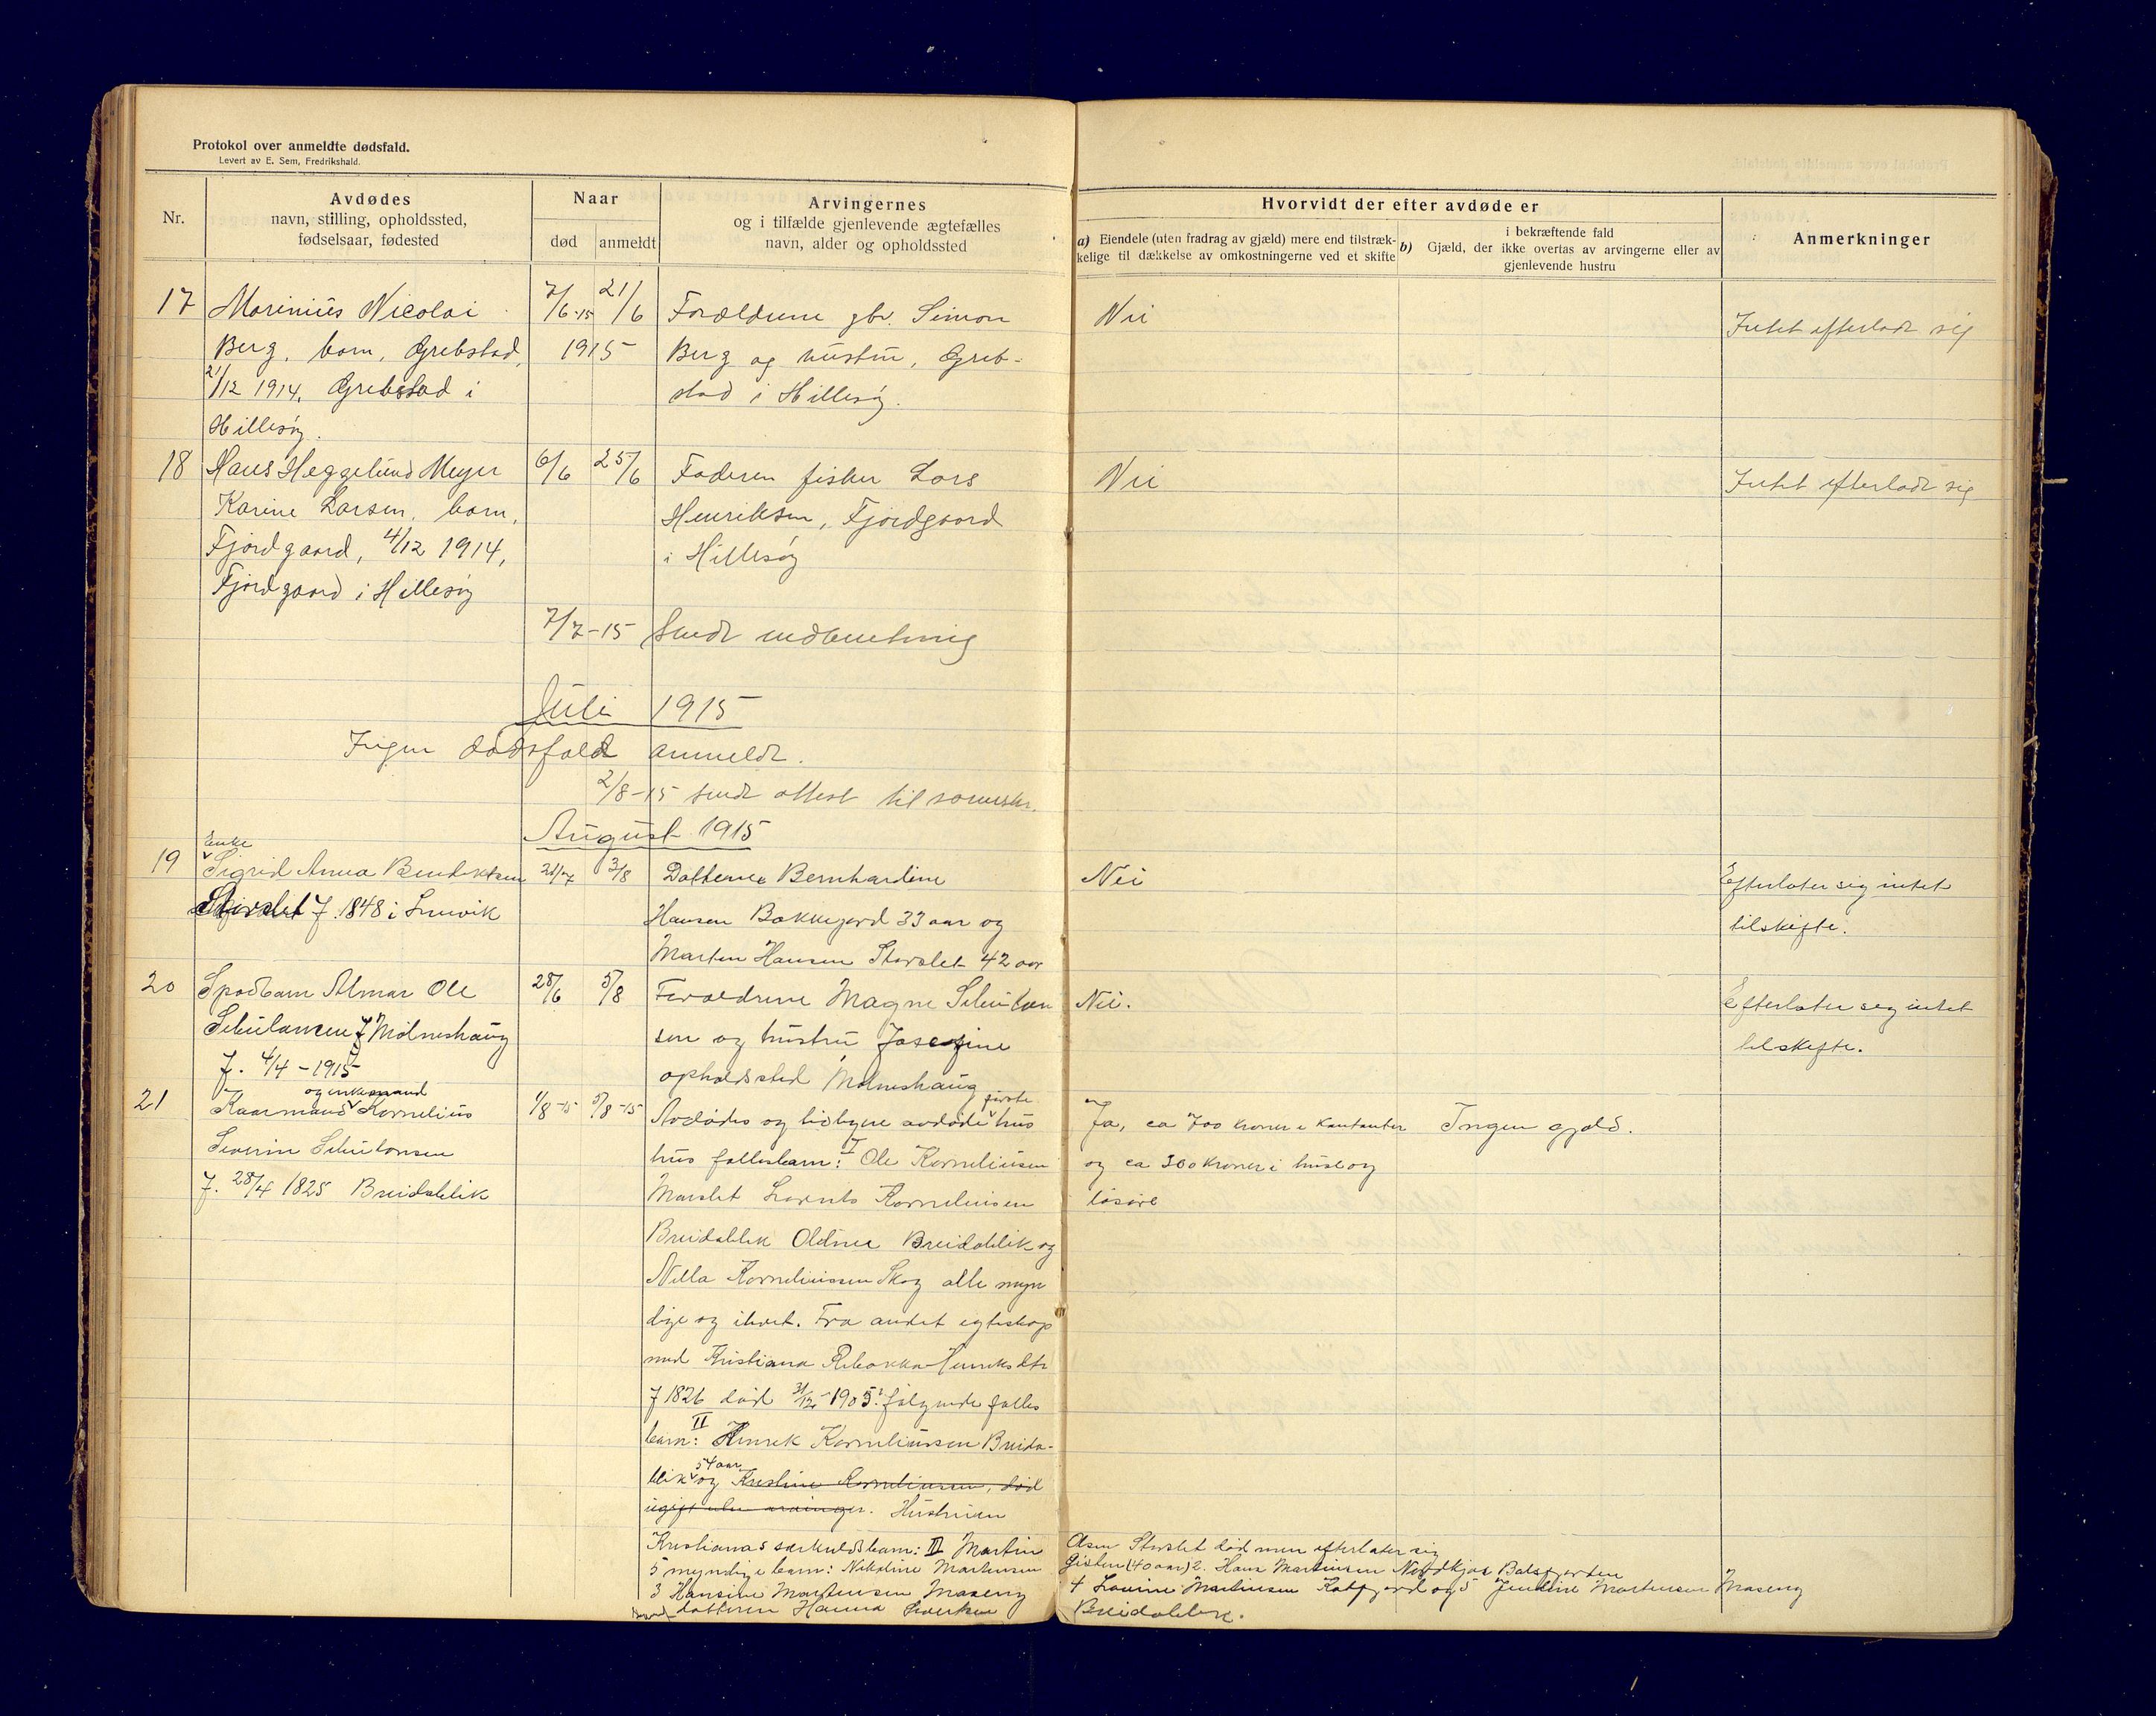 Protokol over anmeldte dødsfald.
Levert av E. Sem, Fredrikshald.
Nr.
Avdødes
navn, stilling, opholdssted,
fødselsaar, fødested
Naar
død
anmeldt
Arvingernes
og i tilfælde gjenlevende ægtefælles
navn, alder og opholdssted
Hvorvidt der efter avdøde er
a) Eiendele (uten fradrag av gjæld) mere end tilstræk-
kelige til dækkelse av omkostningerne ved et skifte
i bekræftende fald
b) Gjæld, der ikke overtas av arvingerne eller av
gjenlevende hustru
Anmerkninger
17 Marinius Nicolai
Berg, barn, Grebstad,
21/12 1914, Grebstad i
Hillesøy.
7/6-15 21/6
1915
Forældrene gbr. Simon
Berg og hustru, Greb-
stad i Hillesøy.
Nei
Intet efterladt sig
18 Hans Heggelund Meyer
Karine Larsen, barn,
Fjordgaard, 4/12 1914,
Fjordgaard i Hillesøy
6/6 25/6
Faderen fisker Lars
Henriksen, Fjordgaard
i Hillesøy
Nei
Intet efterladt sig
7/7-15 Sendt indberetning
Juli 1915
Ingen dødsfald anmeldt.
2/8-15 sendt attest til sorenskr.
August 1915
19 Enke
Sigrid Anna Bendiktsen
Storslet f. 1848 i
21/7 3/8
Døtterne Bernhardine
Hansen Bakkejord 33 aar og
Marten Hansen Storslet 42 aar
Nei
Efterlater sig intet
tilskifte.
20 Spædbarn Almar Ole
Schulansen f Mølneshaug
f. 4/4-1915
28/6 5/8
Forældrene Magne Schulan
sen og hustru Josefine
opholdssted Mølneshaug
Nei.
Efterlater sig intet
tilskifte.
21 og enkemand
Kaarmand Kornelius
Severin Schulansen
f. 28/4 1825 Breidablik
1/8-15 5/8-15
første
Avdødes og tidligere avdøde hus
hus fællesbarn: I Ole Korneliusen
Marslet Korneliusen
Breidablik Oldine Breidablik og
Nella Korneliussen Skog alle myn
dige og Fra andet egteskap
med Kristiana Rebekka Henriksdtr
f 1826 død 31/12-1905: følgende fælles
II
barn: Henrik Korneliussen Breida-
54 aar
blik og Kristine Korneliussen, død
ugift uten arvinger. Hustruen
Kristianas særkuldsbarn: II Martin
5 myndige barn: Nikoline Martinsen
3 Hansine Martinsen Maseng
datteren Hanna
Ja, ca 700 kroner i kontanter
og ca 300 kroner i hus og
løsøre
Ingen gjæld.
Olsen Storslet død men efterlater sig
Gisten (40 aar) 2. Hans Martinsen Nordkjos Balsfjorden
4 Laurine Martinsen Katfjord og 5 Jensine Martinsen Maseng
Breidablik.